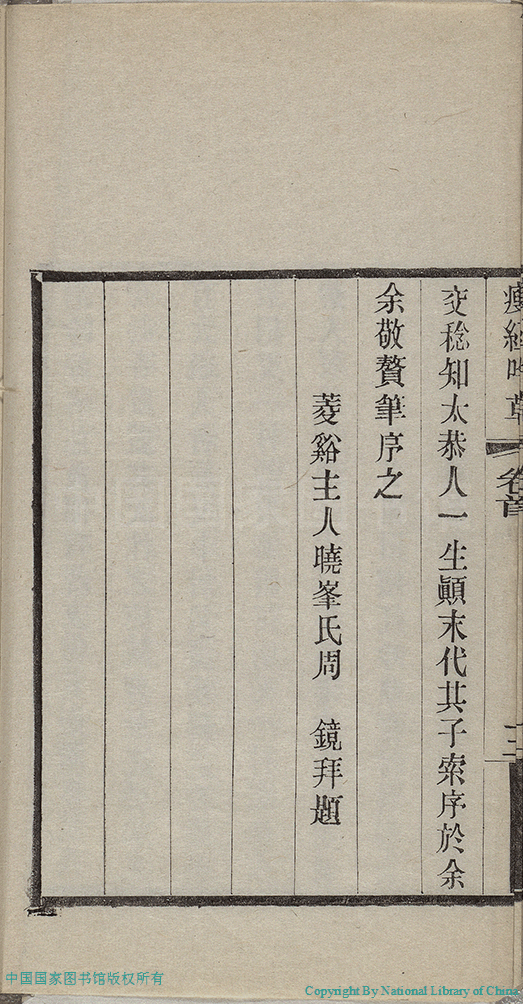 交稔知太恭人一生顚末代其子索序於余
余敬贅筆序之
菱谿主人曉峯氏周　鏡拜題
卷首
三
中国国家图书馆版权所有
Copyright By National Library of China